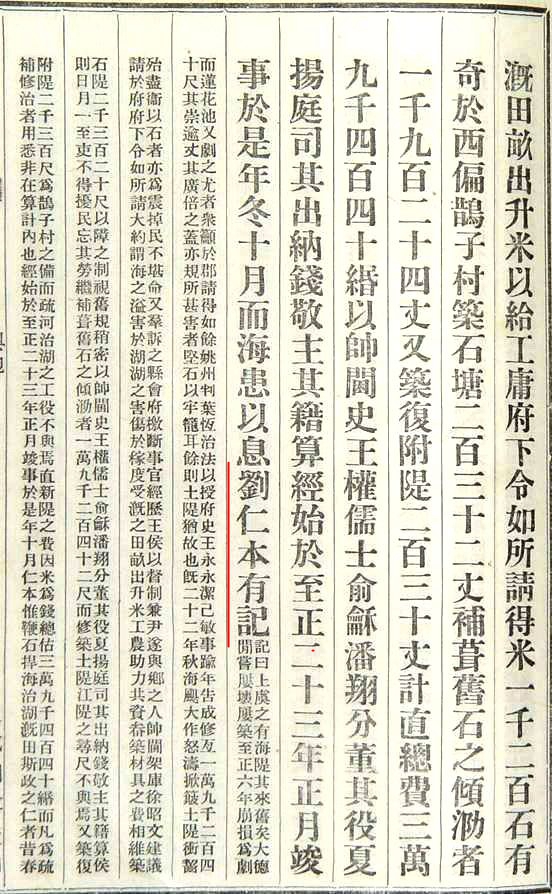 溉田畝出升米以給工庸府下令如所請得米一千二百石有
奇於西偏鵲子村築石塘二百三十二丈補葺舊石之傾泐者
一千九百二十四丈又築復附隄二百三十丈計直總費三萬
九千四百四十緡以帥閫史王權儒士俞龢潘翔分董其役夏
揚庭司其出納錢敬主其籍算經始於至正二十三年正月竣
事於是年冬十月而海患以息劉仁本有記
記曰上虞之有海隄其來舊矣大德
間嘗屢壞屢築至正六年崩損爲劇
而蓮花池又劇之尤者衆籲於郡請得如餘姚州判葉恆治法以授府史王永永潔己敏事踰年告成修亙一萬九千二百四
十尺其崇逾丈其廣倍之蓋亦規所甚害者堅石以牢籠耳餘則土隄猶故也旣二十二年秋海颶大作怒濤掀簸土隄衝齧
殆盡衞以石者亦爲震掉民不堪命又羣訴之縣會府檄斷事官經歷王侯以督制兼尹遂與鄉之人帥閫架庫徐昭文建議
請於府府下令如所請大約謂海之溢害於湖湖之害傷於稼度受漑之田畝出升米工農助力共資畚築材具之費相維築
石隄二千三百二十尺以障之制視舊規稍密以帥閫史王權儒士俞龢潘翔分董其役夏揚庭司其出納錢敬主其籍算侯
則日月一至吏不得擾民忘其勞繼補葺舊石之傾泐者一萬九千二百四十二尺而修築土隄江隄之尋尺不與焉又築復
附隄二千三百尺爲鵲子村之備而疏河治湖之工役不與焉直新隄之費因米爲錢總估三萬九千四百四十緡而凡爲疏
補修治者用悉非在算計內也經始於至正二十三年正月竣事於是年十月仁本惟鞭石捍海治湖漑田斯政之仁者昔春